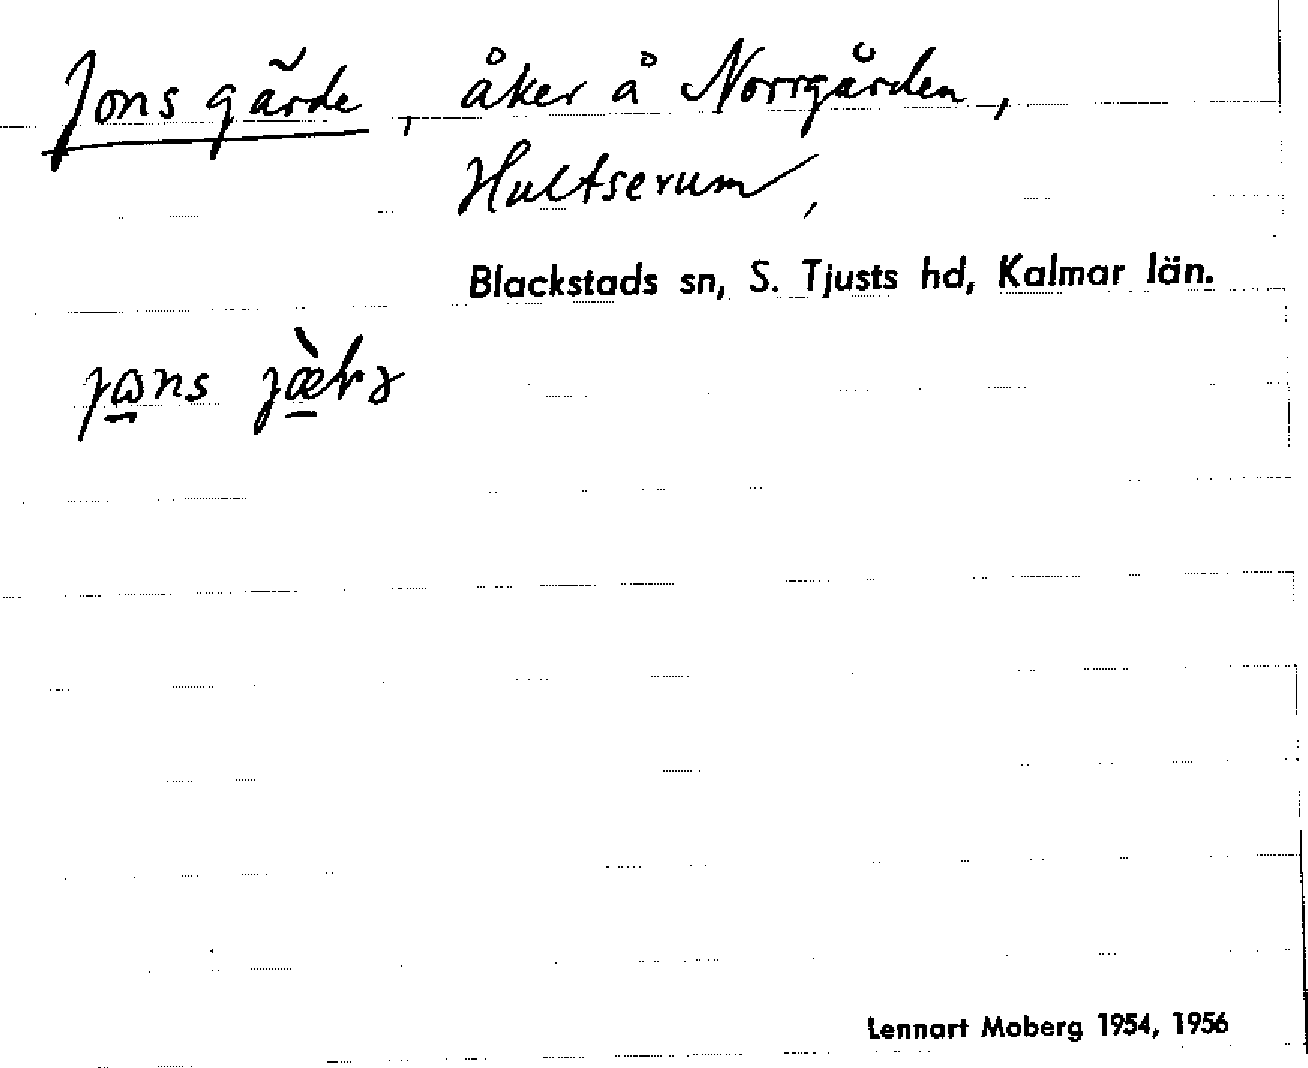 Jons gärde, åker å Norrgården,
Hultserum,
Blackstads sn, S. Tjusts hd, Kalmar län.
Lennart Moberg 1954, 1956